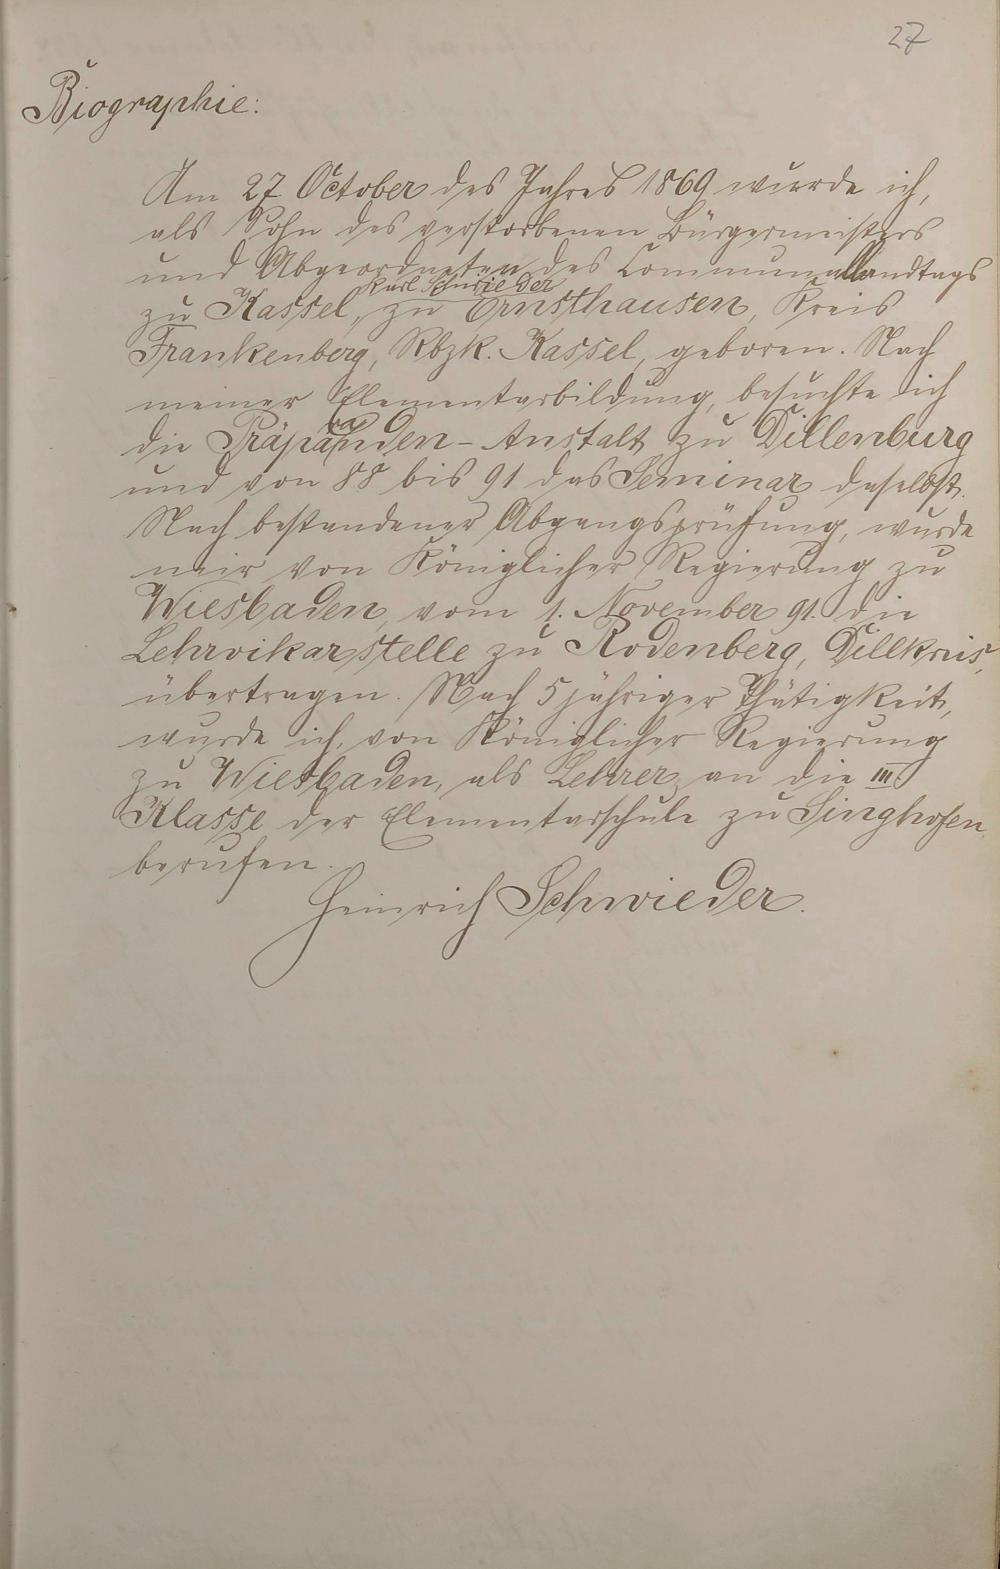 27
Biographie:
Am 27 October des Jahres 1869 wurde ich,
als Sohn des verstorbenen Bürgermeisters
und Abgeordneten des Communallandtags
Karl Schwieder
zu Kassel, zu Ernsthausen, Kreis
Frankenberg, Rbzk. Kassel, geboren. Nach
meiner Elementarbildung, besuchte ich
die Präparanden-Anstalt zu Dillenburg
und von 88 bis 91 das Seminar daselbst.
Nach bestandener Abgangsprüfung, wurde
mir von Königlicher Regierung zu
Wiesbaden, vom 1. November 91. die
Lehrvikarstelle zu Rodenberg, Dillkreis,
übertragen. Nach 5 jähriger Thätigkeit,
wurde ich, von Königlicher Regierung
zu Wiesbaden, als Lehrer an die III
Klasse der Elementarschule zu Singhofen
berufen.
Heinrich Schwieder.